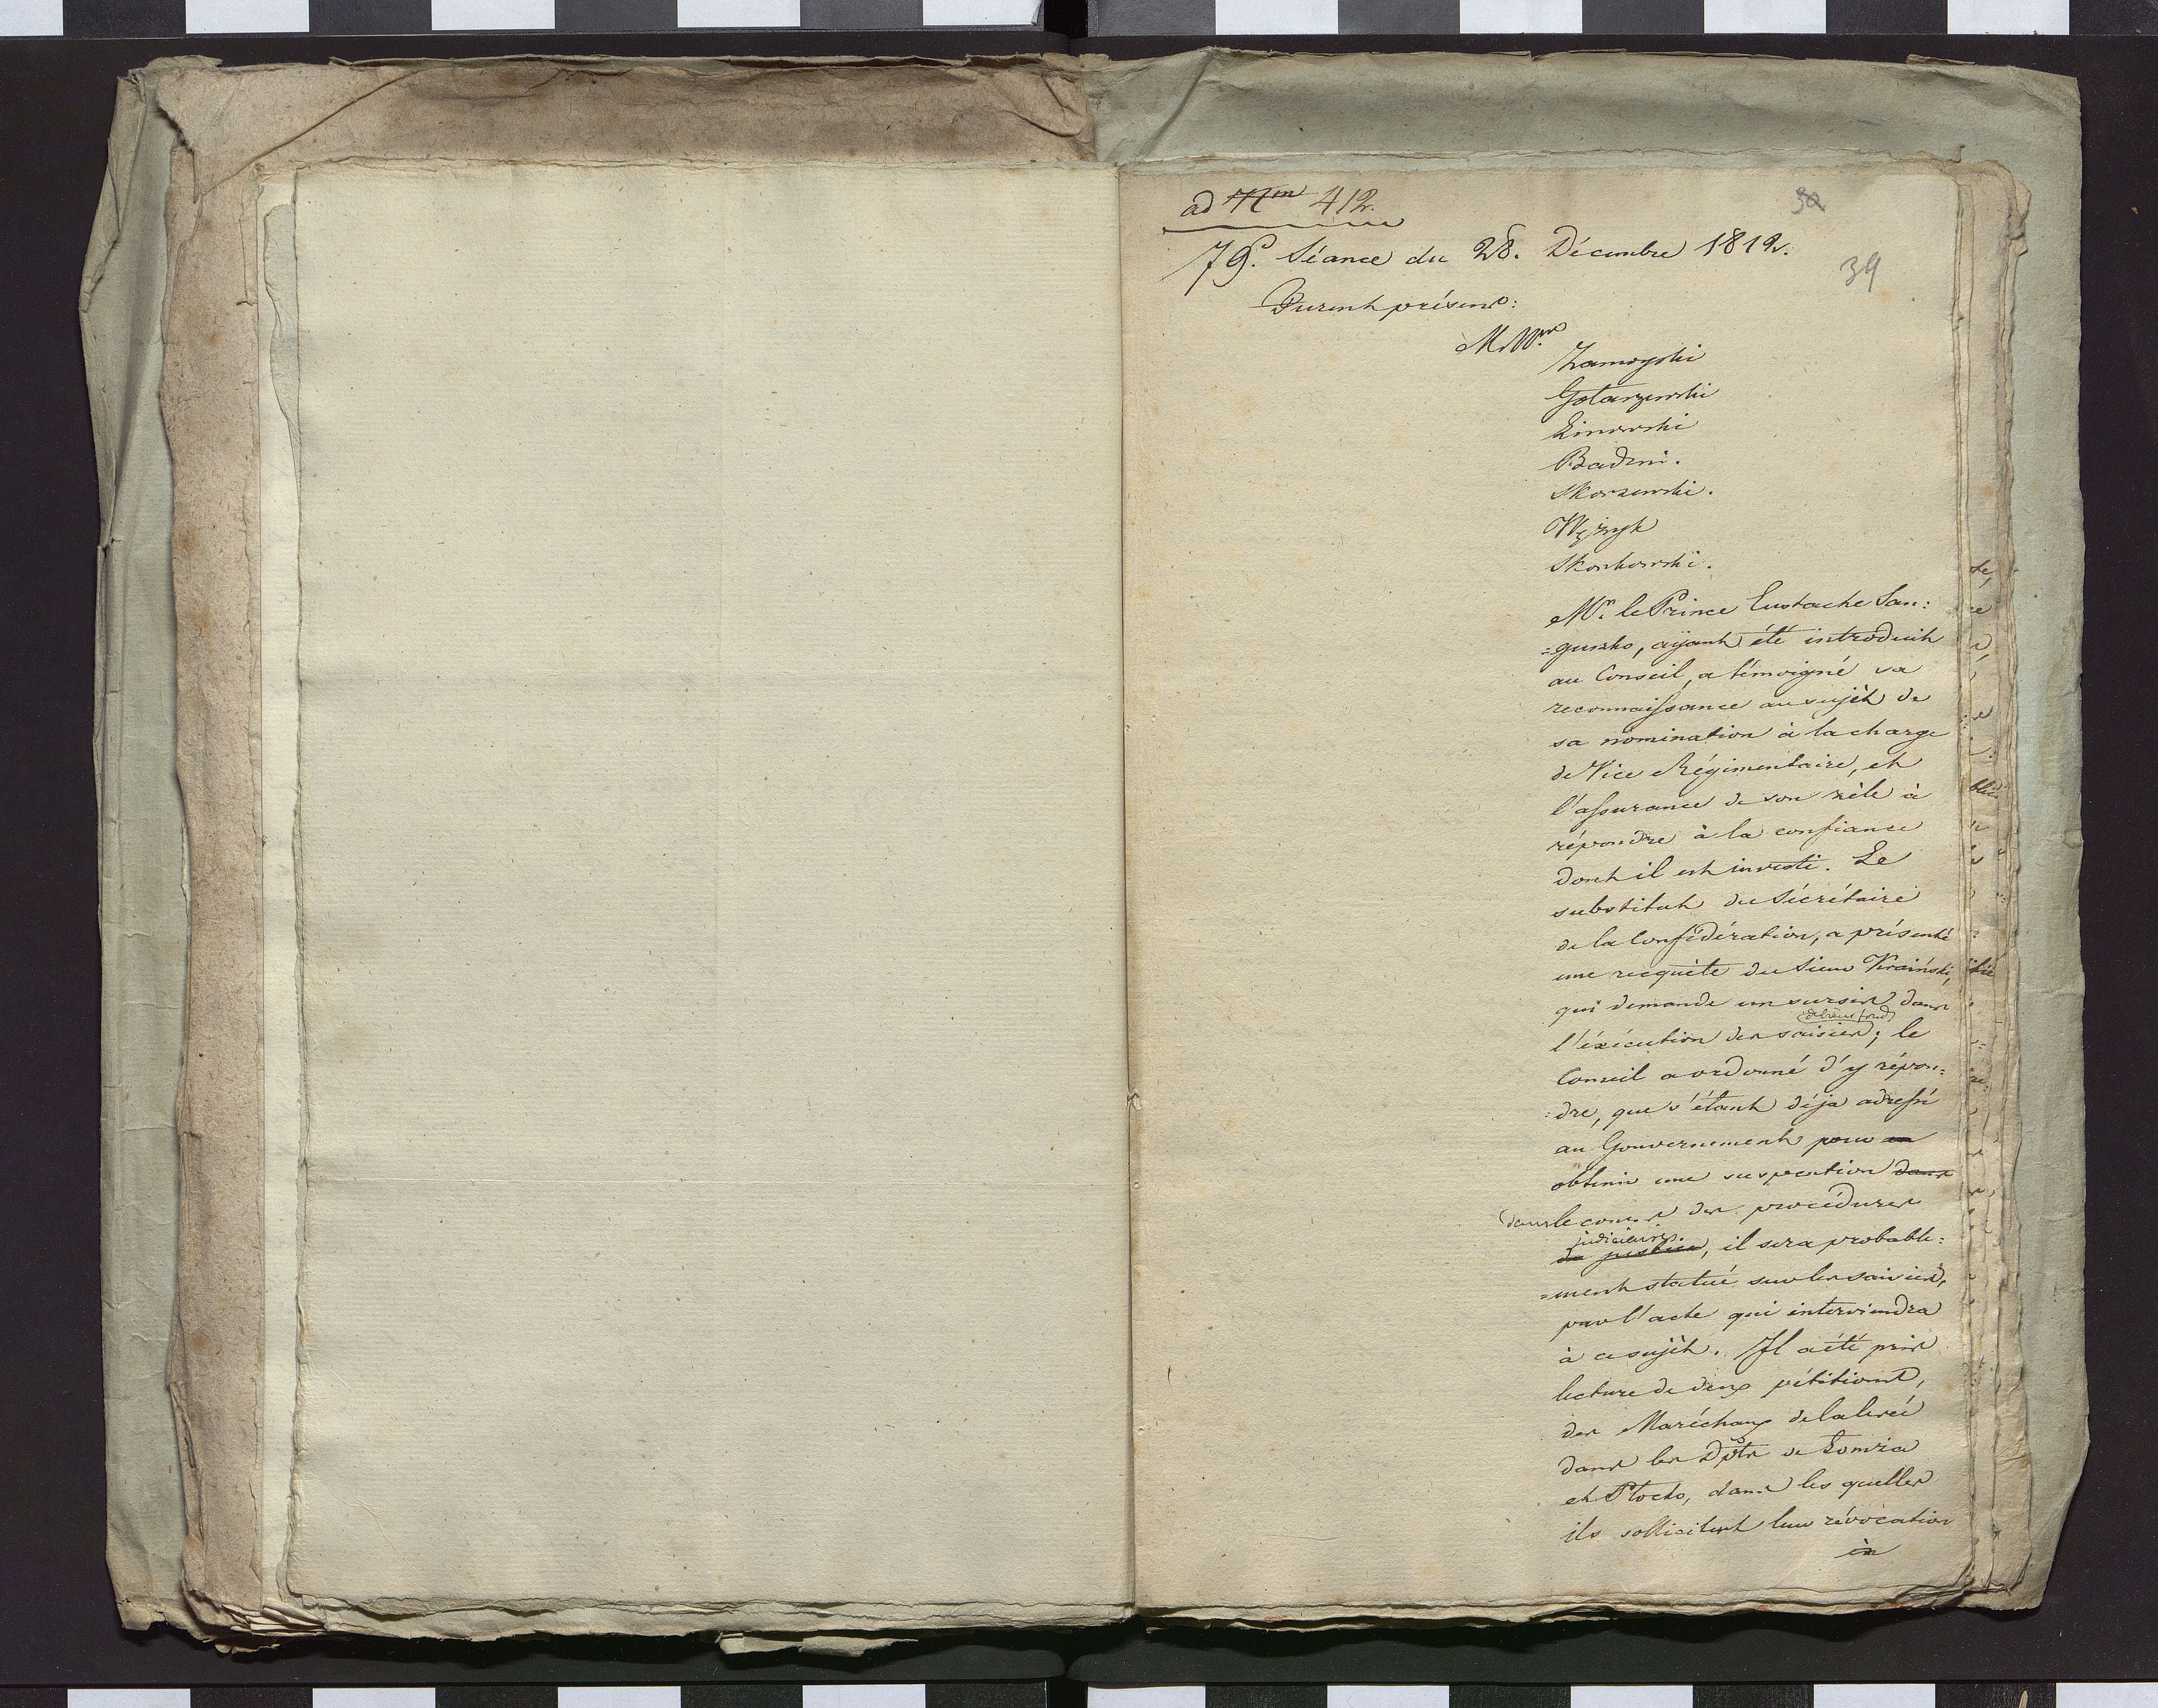 ad Num 412.
39
79e. Séance du 28. Décembre 1812.
39
Furent présens:
M.Mrs.
Zamoyski
Gołaszewski
Linowski
Badeni.
Skorzewski.
Wężyk
Skorkowski.
Mr. le Prince Eustache San:
=guszko, aÿant été introduit
au Conseil, a témoigné sa
reconnaissance au sujèt de
sa nomination à la charge
de Vice Régimentaire, et
l'assurance de son zèle à
répondre à la confiance
dont il est investi. Le
substitut du Sécrétaire
de la Confédération, a présenté
une recquète du Sieur Kraiński,
qui demande un sursis dans
l'éxécution des saisies; le
(de biens fonds)
Conseil a ordonné d'y répon:
:dre, que s'étant déja adressé
au Gouvernement pour en
obtenir une suspention dans
(dans le cours des procédures
judiciaires.
de justice, il sera probable:
=ment statué sur les saisies,
par l'acte qui interviendra
à ce sujèt. Il a été pris
lecture de deux pétitions,
des Maréchaux de la levée
dans les Dpts de Łomza
et Płocko, dans les quelles
ils sollicitent leur révocation
in